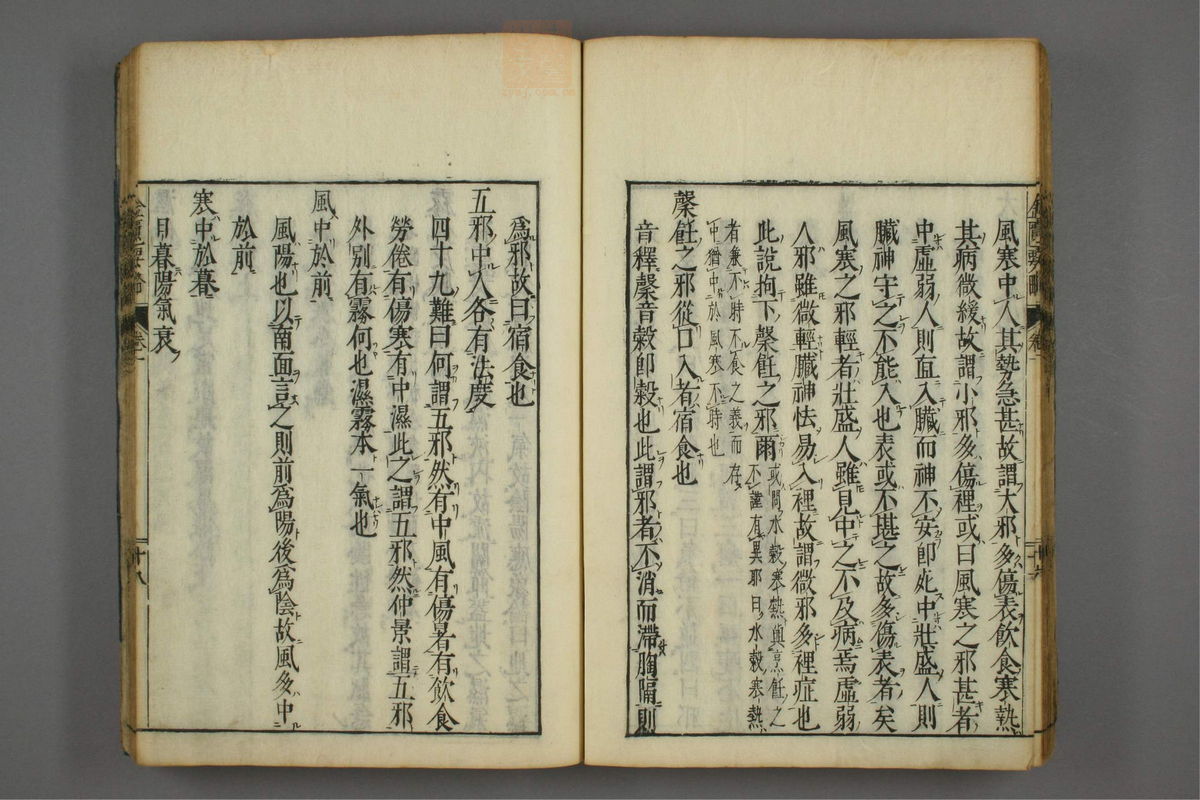 風寒中人其勢急甚故謂大邪多傷表飲食寒熱
其病微緩故謂小邪多傷裡或曰風寒之邪甚者
中虛弱人則直入臟而神不安卽死中壯盛人則
臟神守之不能入也表或不堪之故多傷表者矣
風寒之邪輕者壯盛人雖見中之不及病焉虛弱
人邪雖微輕臟神怯易入裡故謂微邪多裡症也
此說拘下䅽飪之邪爾
或問水穀寒熱與烹飪之
不謹有異邪曰水穀寒熱
者兼不時不食之義而存
中猶中於風寒不時也
䅽飪之邪從口入者宿食也
音釋䅽音穀卽穀也此謂邪者不消而滯胸隔則
爲邪故曰宿食也
五邪中人各有法度
四十九難曰何謂五邪然有中風有傷暑有飲食
勞倦有傷寒有中濕此之謂五邪然仲景謂五邪
外別有霧何也濕霧本一氣也
風中於前
風陽也以南面言之則前爲陽後爲陰故風多中
於前
寒中於暮
日暮陽氣衰
卷一
十八